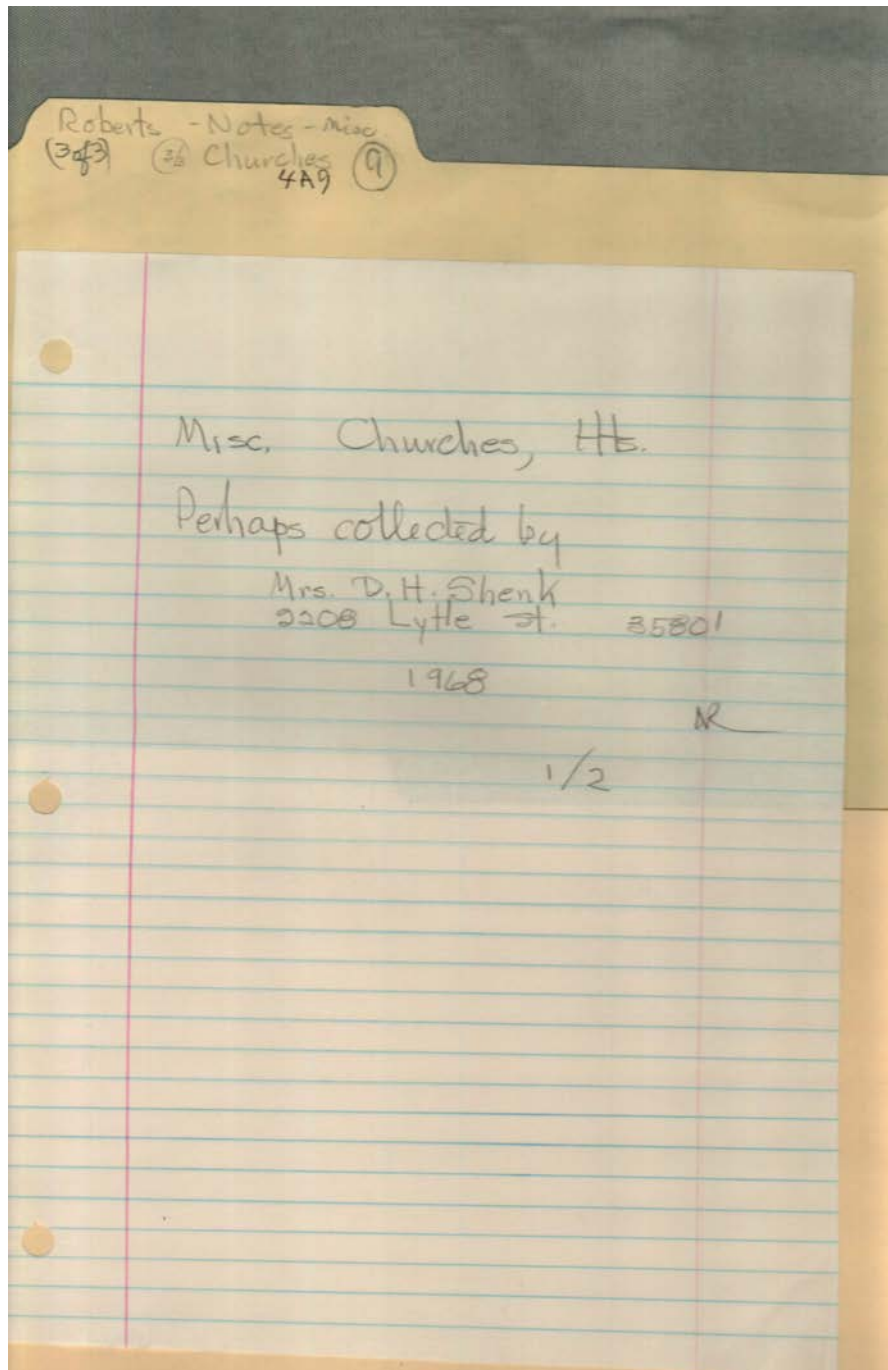 Roberts - Notes - Misc.
(3 of 3) Churches 9
4A9
Misc. Churches, Hts.
Perhaps collected by
Mrs. D. H. Shenk
2208 Lytle St. 35801
1968
NR
1/2